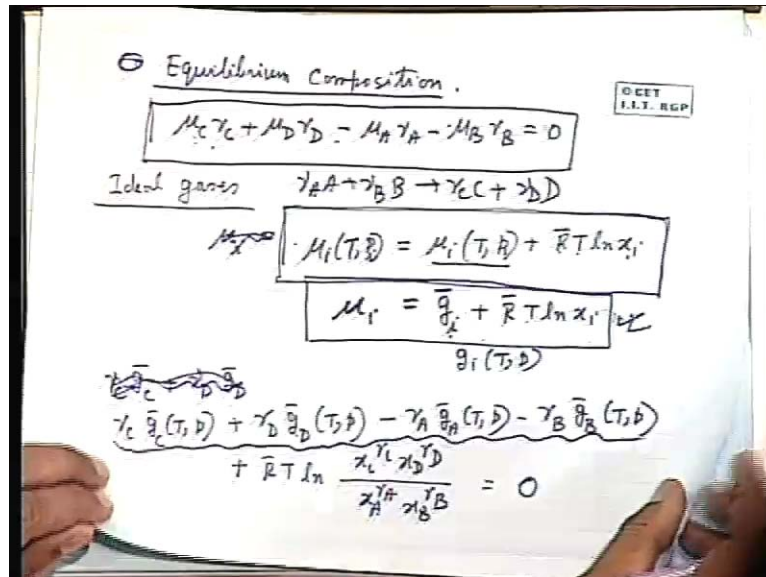 Equilibrium Composition.
© CET
I.I.T. KGP
μ_C ν_C + μ_D ν_D - μ_A ν_A - μ_B ν_B = 0
Ideal gases ν_A A + ν_B B → ν_C C + ν_D D
μ_i (T, p) = μ_i (T, p) + R̄ T ln x_i
μ_i = ḡ_i + R̄ T ln x_i
g_i (T, p)
ν_C ḡ_C (T, p) + ν_D ḡ_D (T, p) - ν_A ḡ_A (T, p) - ν_B ḡ_B (T, p)
+ R̄ T ln x_C^ν_C x_D^ν_D / x_A^ν_A x_B^ν_B = 0